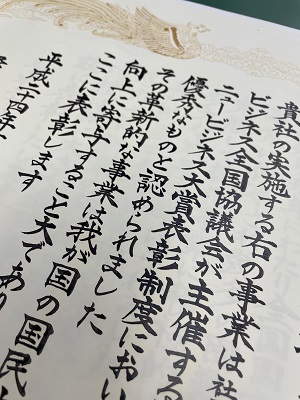 貴社の実施する右の事業は社
ビジネス全国協議会が主催する
ニュービジネス大賞表彰制度におい
優秀なものと認められました
その革新的な事業は我が国の国民
向上に寄与すること大であり
ここに表彰します
平成二十四年